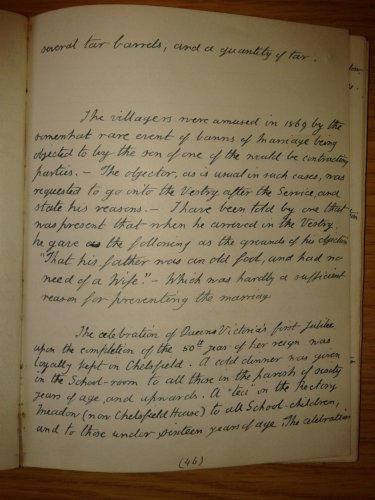 several tar barrels, and a quantity of tar.
The villagers were amused in 1869 by the
somewhat rare event of banns of Marriage being
objected to by the son of one of the would be contracting
parties. — The objector, as is usual in such cases, was
requested to go into the Vestry after the Service, and
state his reasons. — I have been told by one that
was present that when he arrived in the Vestry
he gave as the following as the grounds of his objection
"That his father was an old fool, and had no
need of a Wife". — Which was hardly a sufficient
reason for preventing the marriage
The celebration of Queen Victoria's first Jubilee
upon the completion of the 50th year of her reign was
loyally kept in Chelsfield. A cold dinner was given
in the School-room to all those in the parish of sixty
years of age, and upwards. A "tea" on the Rectory
Meadow (now Chelsfield House) to all School-children,
and to those under sixteen years of age. The celebration
(46)